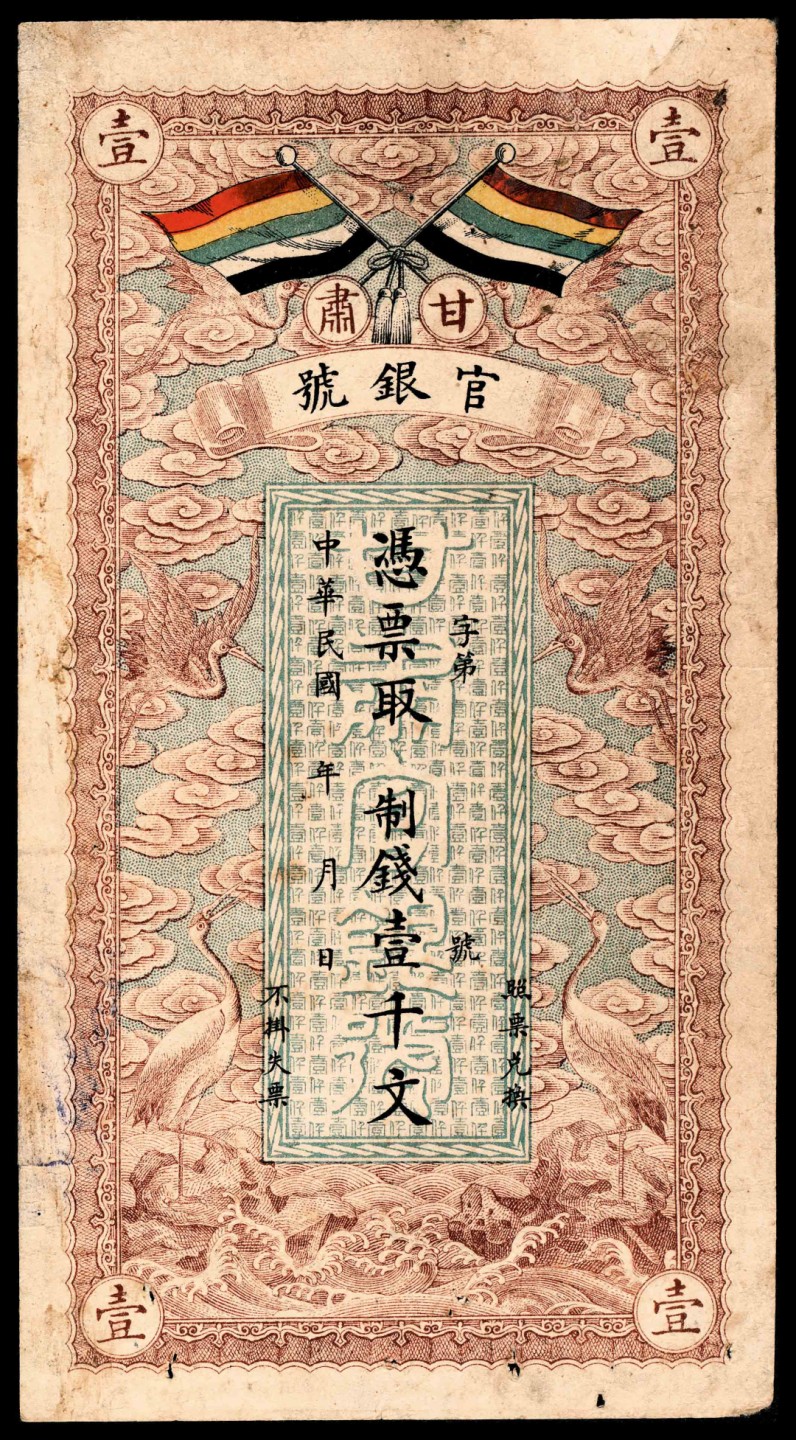 壹 壹
甘肅
官銀號
照票兌換
字第 號
憑票取制錢壹千文
中華民國 年 月 日
不掛失票
壹 壹